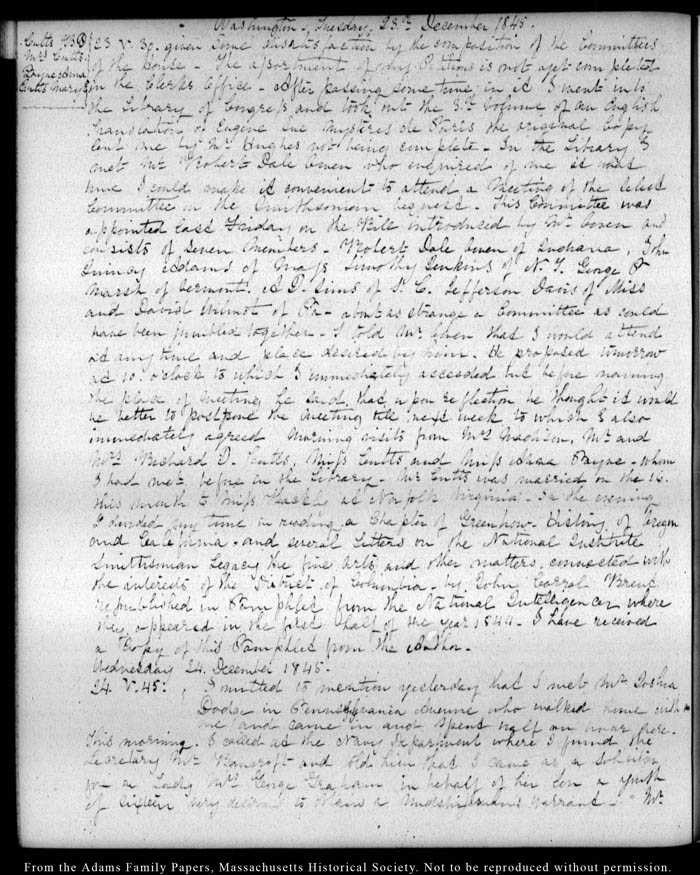 Washington. Tuesday, 23.d December 1845.
Cutts R D
Mrs Cutts
Payne Anna
Cutts Mary
23. V. 30. given some dissatisfaction by the composition of the Committees
of the House. The apartment of my Petitions is not yet completed
in the Clerks Office. After passing some time in it I went into
the Library of Congress and took out the 3d. Volume of an English
translation of Eugene Sue Mysteres de Paris the original Copy
lent me by Mr Hughes not being complete. In the Library I
met Mr Robert Dale Owen who enquired of me at what
time I could make it convenient to attend a Meeting of the select
Committee on the Smithsonian bequest. This Committee was
appointed last Friday on the Bill introduced by Mr. Owen and
consists of seven Members. Robert Dale Owen of Indiana, John
Quincy Adams of Mass Timothy Jenkins of N. Y. George P
Marsh of Vermont. A D. Sims of S. C. Jefferson Davis of Miss
and David Wilmot of Pa. about as strange a Committee as could
have been jumbled together. I told Mr Owen that I would attend
at any time and place desired by him. He proposed tomorrow
at 10. o'clock to which I immediately acceeded but before naming
the place of meeting, he said, that upon reflection he thought it would
be better to postpone the meeting till next week to which I also
immediately agreed. Morning visits from Mrs Madison, Mr. and
Mrs Richard D. Cutts, Miss Cutts and Miss Anna Payne. whom
I had met before in the Library. Mr Cutts was married on the 16.
this month to Miss Hackley at Norfolk Virginia. In the evening
I divided my time in reading a Chapter of Greenhow. History of Oregon
and California. and several Letters on the National Institute
Smithsonian Legacy the fine Arts and other matters, connected with
the interests of the District of Columbia. by John Carrol Brent
republished in Pamphlet from the National Intelligencer where
they appeared in the first half of the year 1844. I have received
a Copy of this Pamphlet from the Author.
Wednesday 24. December 1845.
24. V. 45: I omitted to mention yesterday that I met Mr Joshua
Dodge in Pennsylvania Avenue who walked home with
me and came in and spent half an hour here.
This morning. I called at the Navy Department where I found the
Secretary Mr Bancroft and told him that I came as a Solicitor
for a Lady Mrs George Graham in behalf of her Son a youth
of sixteen very desirous to obtain a Midshipmans warrant. Mr.
From the Adams Family Papers, Massachusetts Historical Society. Not to be reproduced without permission.